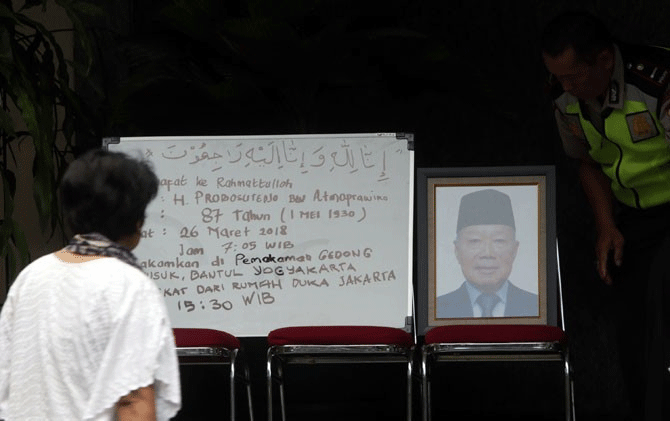 إِنَّا لِلّٰهِ وَإِنَّا إِلَيْهِ رَاجِعُوْنَ
pat ke Rahmatullah
: H. PROBOSUTEDJO Bin Atmoprawiro
: 87 Tahun (1 MEI 1930)
at : 26 Maret 2018
Jam 7:05 WIB
makamkan di Pemakaman GEDONG
SUK, BANTUL YOGYAKARTA
KAT DARI RUMAH DUKA JAKARTA
15:30 WIB